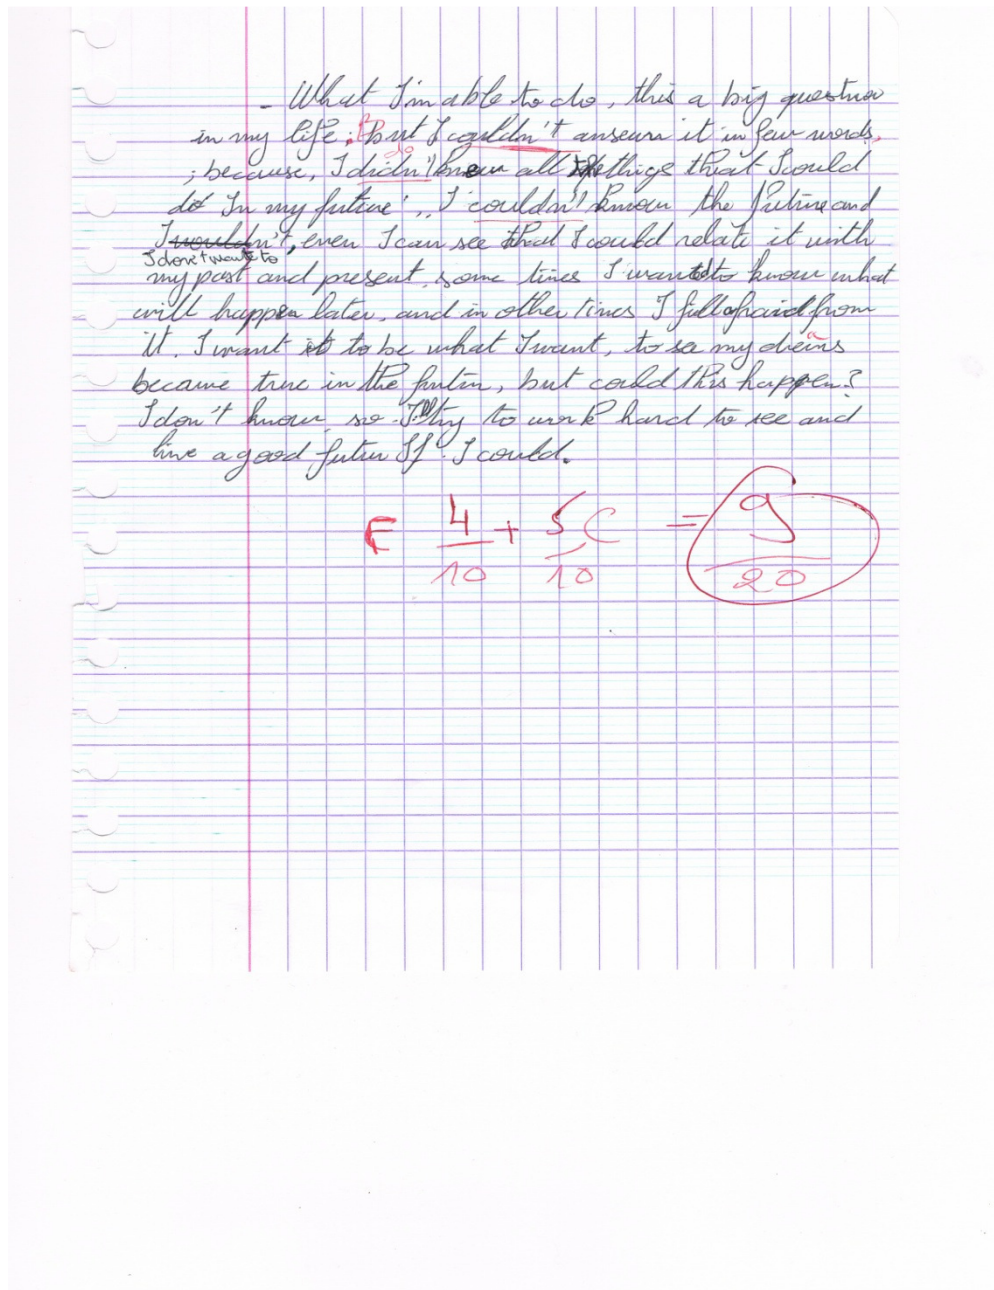 - What I'm able to do, this a big question
in my life, but I couldn't answer it in few words,
; because, I didn't know all the things that I could
do In my future, I couldn't know the future and
I wouldn't, even I can see that I could relate it with
I don't want to
my past and present, some times I want to know what
will happen later, and in other times I fill afraid from
it. I want to be what I want, to see my dreams
became true in the futur, but could this happen?
I don't know, so I'll try to work hard to see and
live a good futur If I could.
F 4/10 + 5/10 C = 9/20